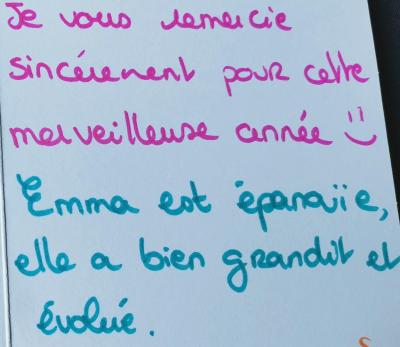 Je vous remercie
sincèrement pour cette
merveilleuse année :)
Emma est épanouïe,
elle a bien grandit et
évolué.